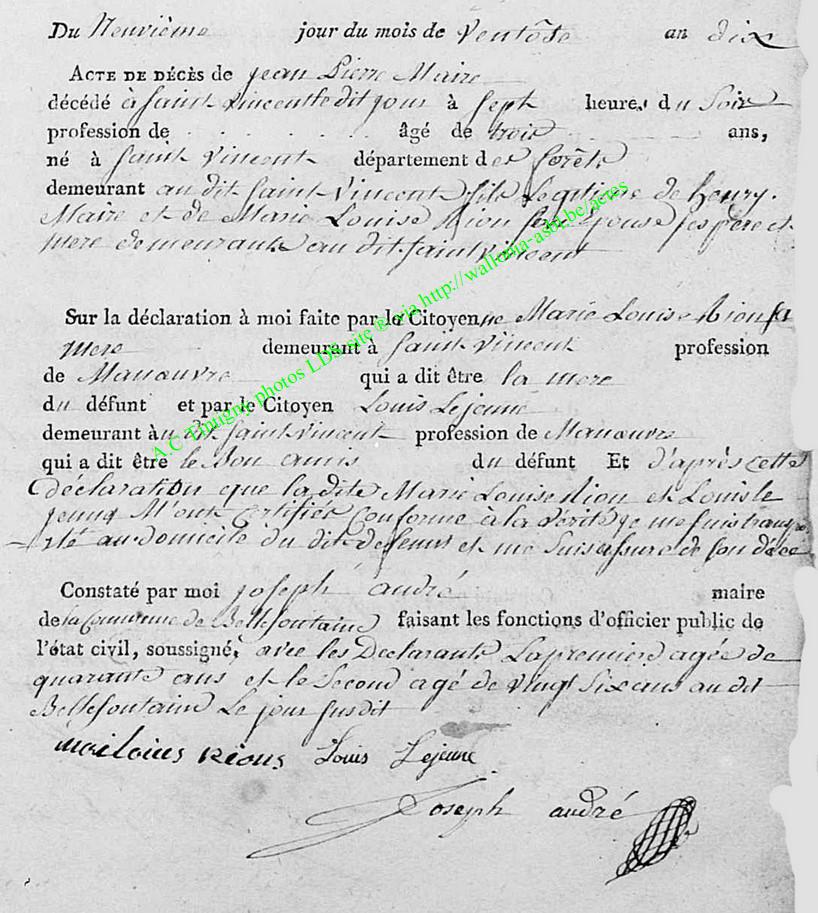 Du Neuvième jour du mois de Ventôse an dix
ACTE DE DÉCÈS de jean Pierre Maire
décédé à Saint Vincent ledit jour à Sept heures du Soir
profession de . . . . . . . âgé de trois ans,
né à Saint Vincent département des forêts
demeurant au dit Saint Vincent fils Legitime de henry
Maire et de Marie Louise Rion son Epouse ses père et
mere demeurants au dit Saint Vincent
Sur la déclaration à moi faite par le Citoyenne Marie Louise Rion sa
mere demeurant à Saint Vincent profession
de Manœuvre qui a dit être la mere
du défunt et par le Citoyen Louis Lejeune
demeurant au dit Saint Vincent profession de Manœuvre
qui a dit être le Bon amis du défunt Et d'après cette
déclaration que la dite Marie Louise Rion et Louis le
jeune M'ont Certifiér Conforme à la Vérité je me suis transpo
-rté au domicile du dit defunt et me Suis assuré de son décé
Constaté par moi joseph andré maire
de la Commune de Bellefontaine faisant les fonctions d'officier public de
l'état civil, soussigné, avec les Declarants La premiere agée de
quarante ans et le Second agé de Vingt Six ans au dit
Bellefontaine Le jour susdit
mailoius Rions Louis Lejeune
Joseph andré
A.C Tintigny photos LDS site ® via http://wallonia-asbl.be/actes